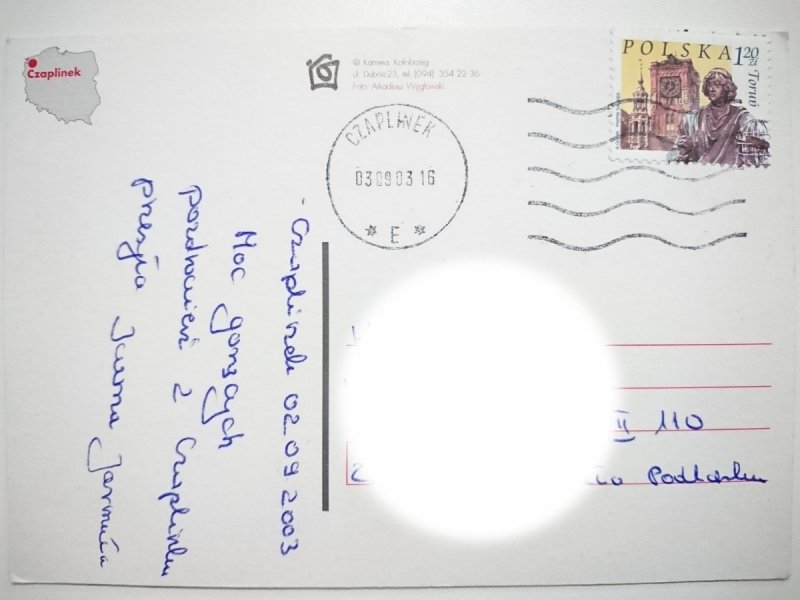 Czaplinek
© Kamera, Kołobrzeg
ul. Dubois 23, tel. (094) 354 22 36
Foto: Arkadiusz Węgłowski
POLSKA 1,20 zł
Toruń
CZAPLINEK
03 09 03 16
* E *
- Czaplinek 02.09.2003
Moc gorących
pozdrowień z Czaplinka
przesyła Janina
II 110
Podlaska